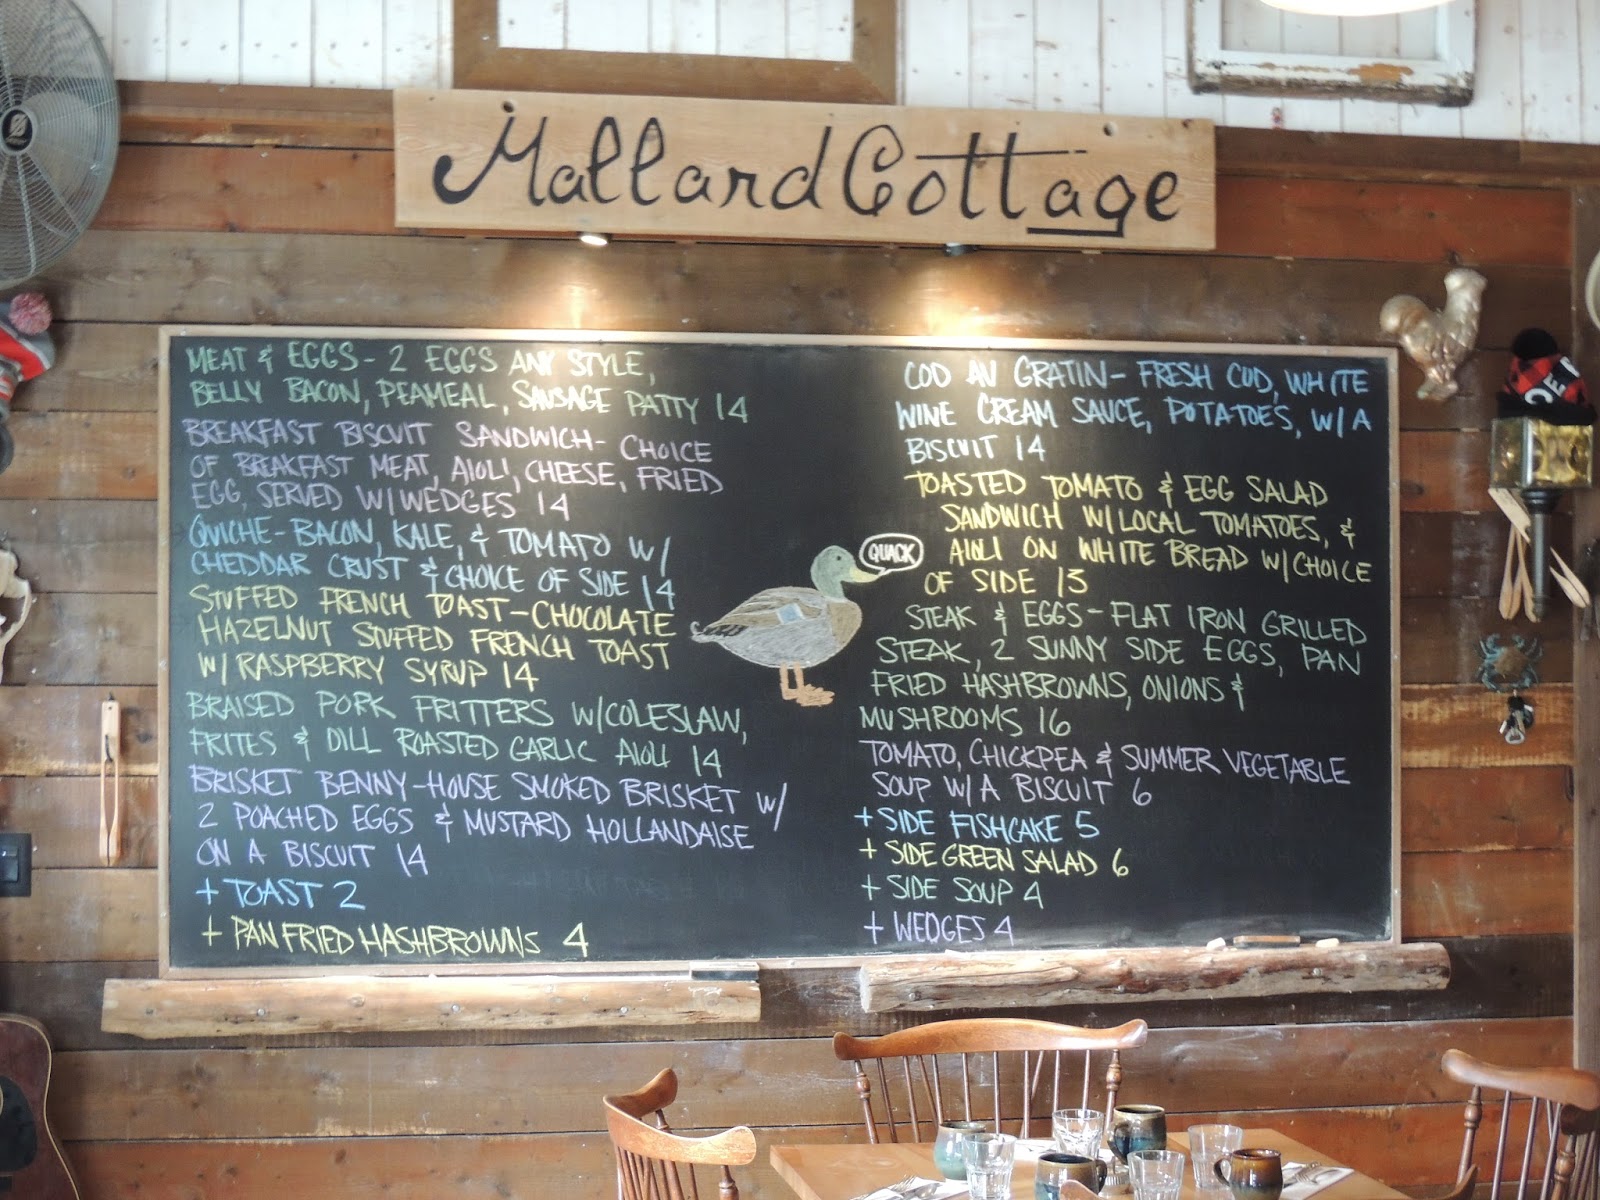 Mallard Cottage
MEAT & EGGS - 2 EGGS ANY STYLE,
BELLY BACON, PEAMEAL, SAUSAGE PATTY 14
BREAKFAST BISCUIT SANDWICH - CHOICE
OF BREAKFAST MEAT, AIOLI, CHEESE, FRIED
EGG, SERVED W/WEDGES 14
QUICHE - BACON, KALE, & TOMATO W/
CHEDDAR CRUST & CHOICE OF SIDE 14
STUFFED FRENCH TOAST - CHOCOLATE
HAZELNUT STUFFED FRENCH TOAST
W/RASPBERRY SYRUP 14
BRAISED PORK FRITTERS W/COLESLAW,
FRITES & DILL ROASTED GARLIC AIOLI 14
BRISKET BENNY - HOUSE SMOKED BRISKET W/
2 POACHED EGGS & MUSTARD HOLLANDAISE
ON A BISCUIT 14
+ TOAST 2
+ PAN FRIED HASHBROWNS 4
QUACK
COD AU GRATIN - FRESH COD, WHITE
WINE CREAM SAUCE, POTATOES, W/A
BISCUIT 14
TOASTED TOMATO & EGG SALAD
SANDWICH W/LOCAL TOMATOES, &
AIOLI ON WHITE BREAD W/CHOICE
OF SIDE 13
STEAK & EGGS - FLAT IRON GRILLED
STEAK, 2 SUNNY SIDE EGGS, PAN
FRIED HASHBROWNS, ONIONS &
MUSHROOMS 16
TOMATO, CHICKPEA & SUMMER VEGETABLE
SOUP W/A BISCUIT 6
+ SIDE FISHCAKE 5
+ SIDE GREEN SALAD 6
+ SIDE SOUP 4
+ WEDGES 4